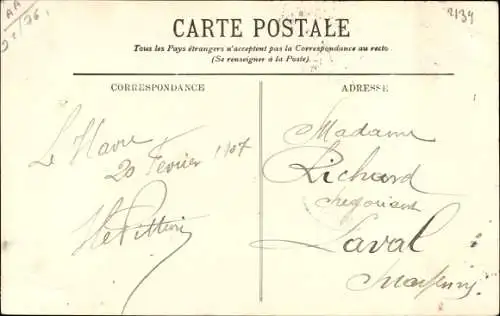 AA
2134
CARTE POSTALE
Tous les Pays étrangers n'acceptent pas la Correspondance au recto
(Se renseigner à la Poste).
CORRESPONDANCE
Le Havre
20 Fevrier 1907
ADRESSE
Madame
Richard
negociant
Laval